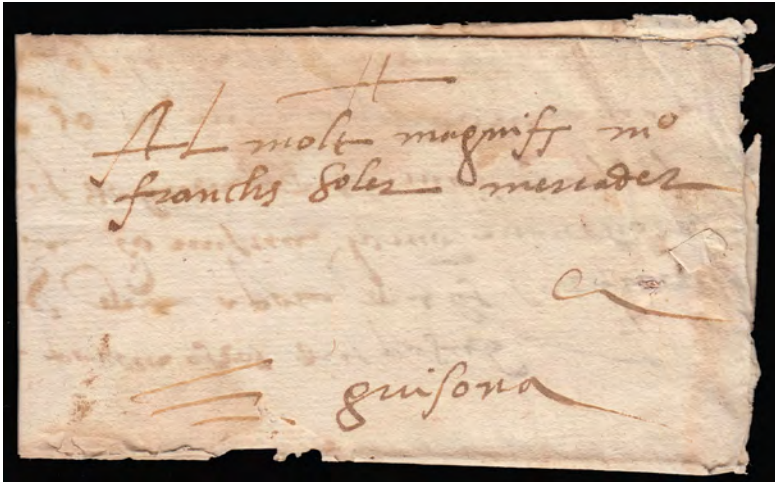 Al molt magnifh mº
franchs soler mercader
a
guisona